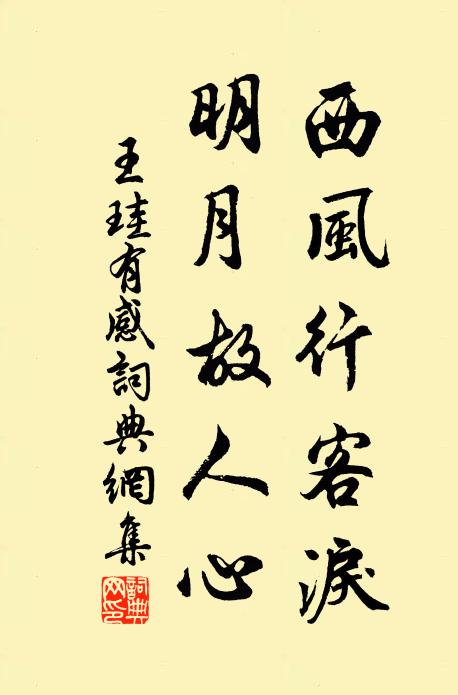 西風行客淚
明月故人心
王珪有感詞典網集
詞典網印